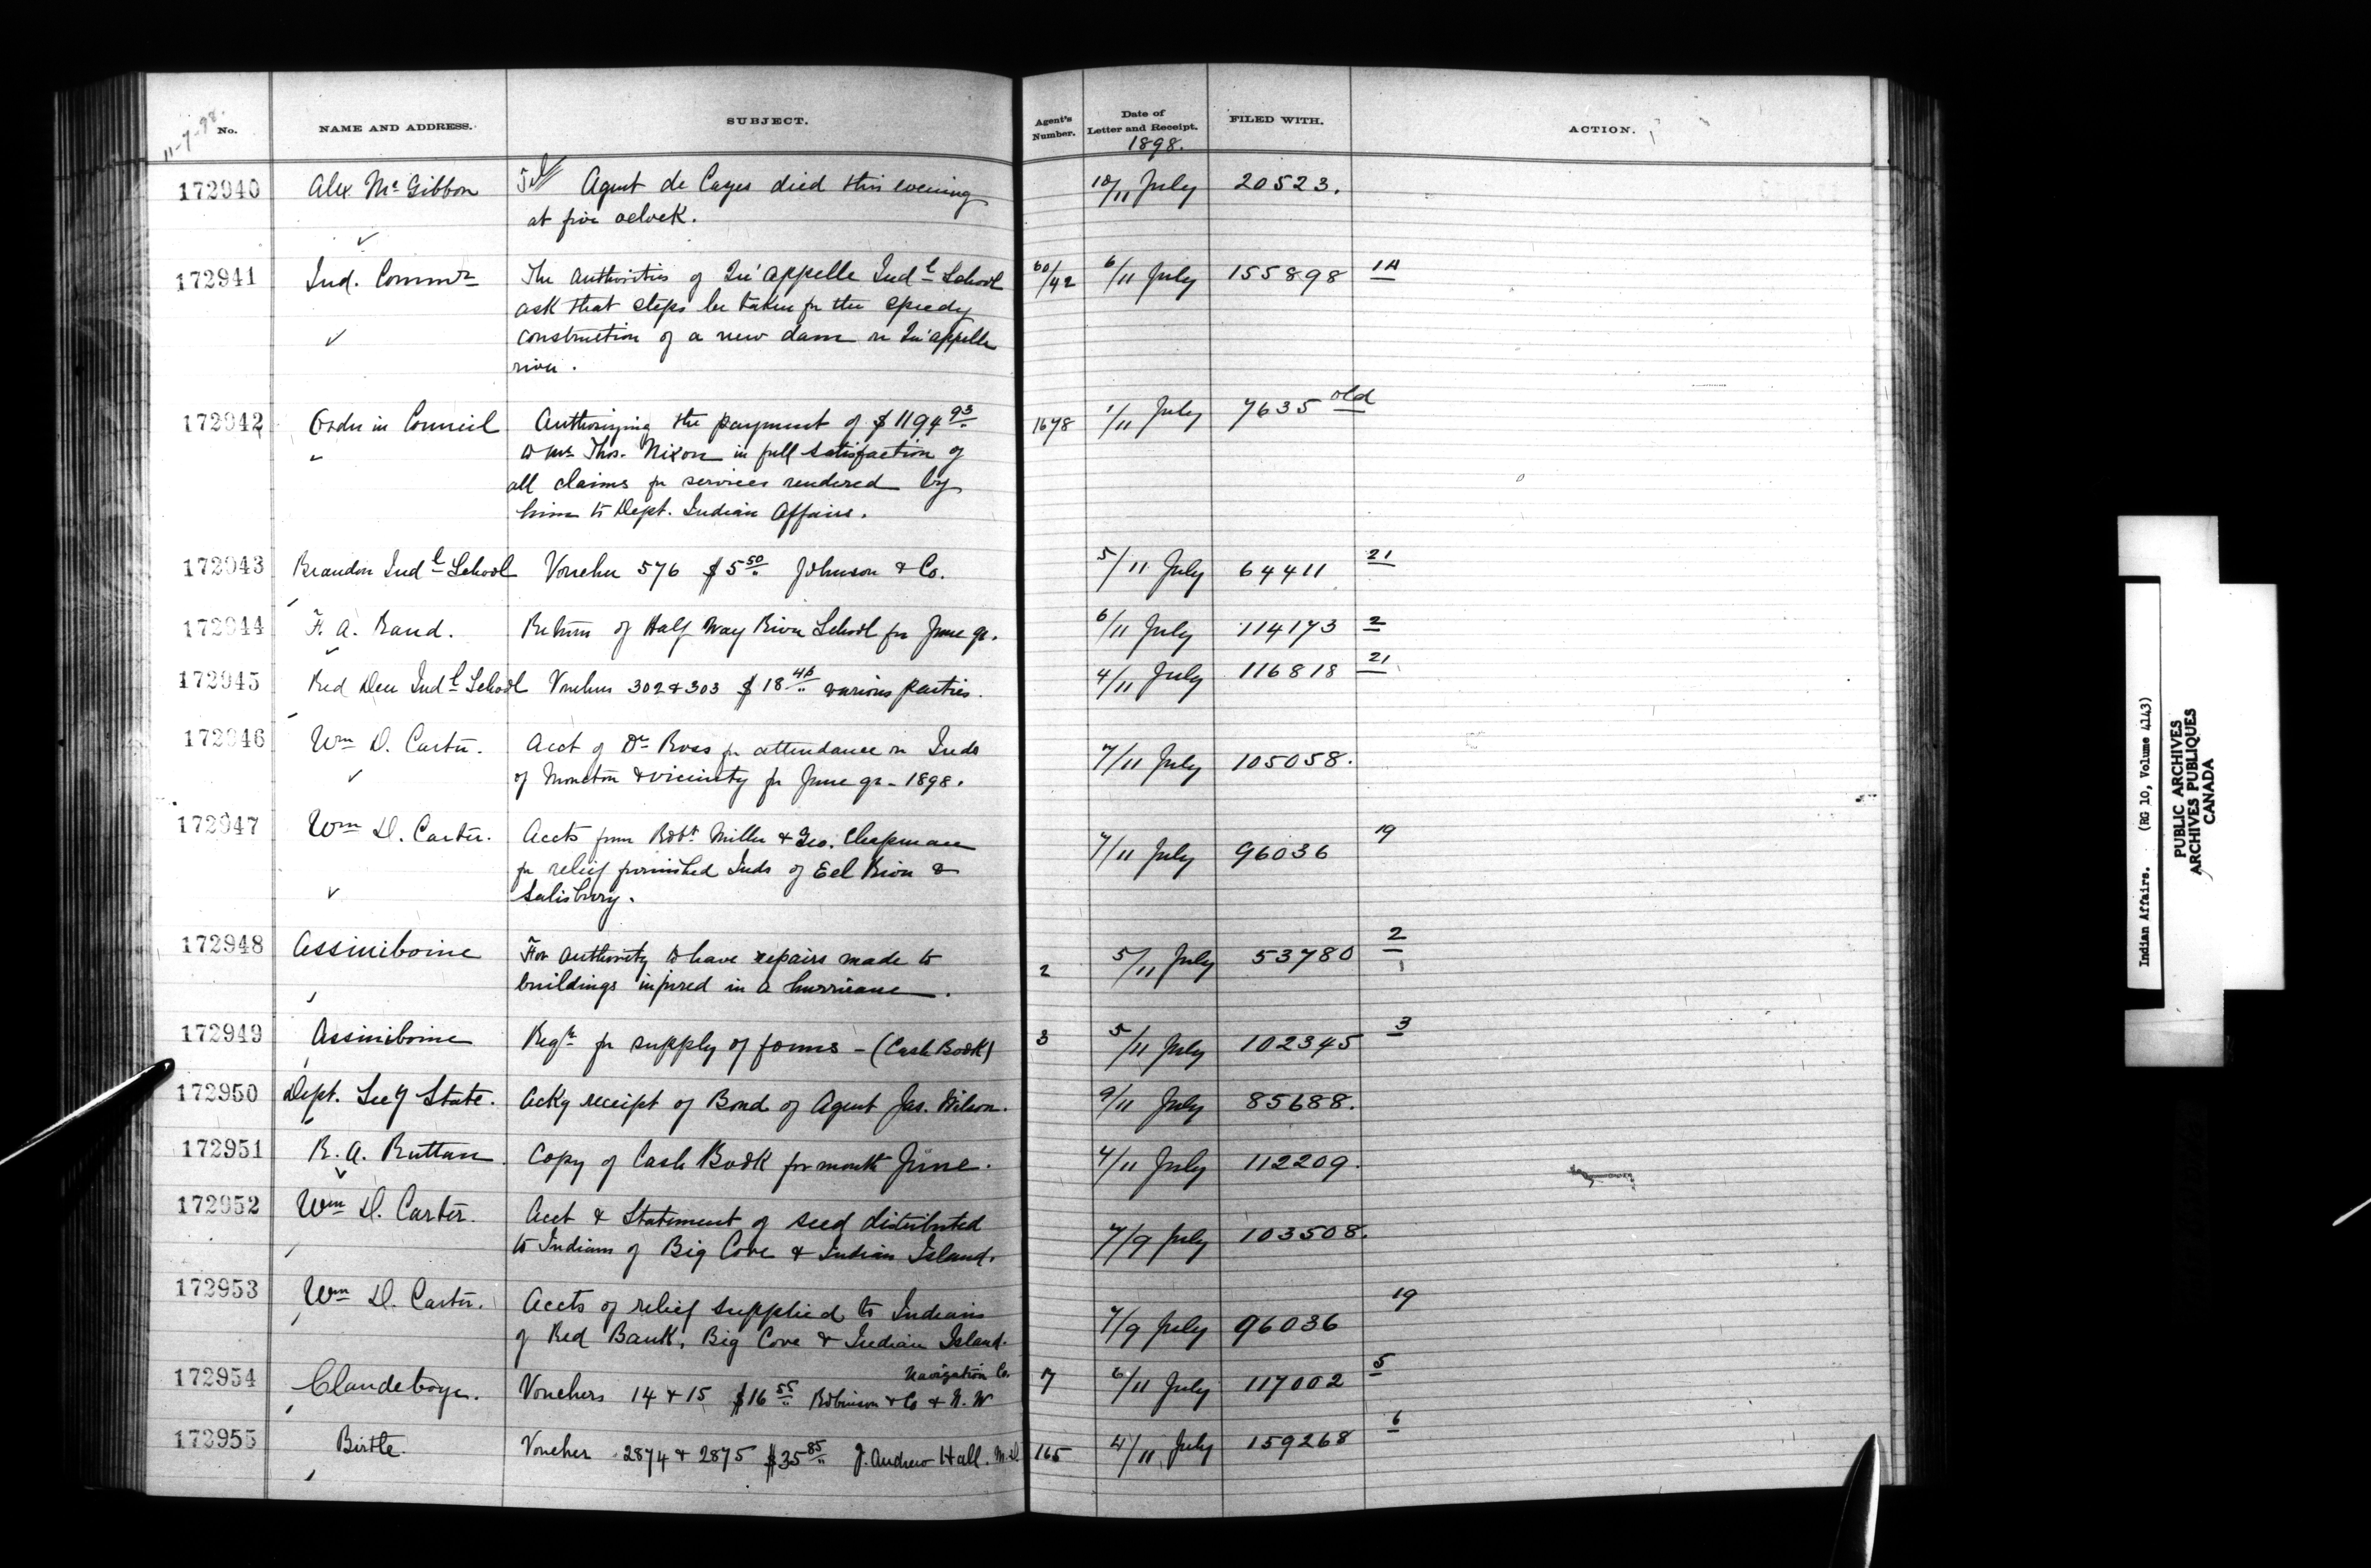 11-7-98.
No. NAME AND ADDRESS. SUBJECT. Agent's Number. Date of Letter and Receipt. FILED WITH. ACTION.
1898.
172940 Alex McGibbon Tel Agent de Cazes died this evening 10/11 July 20523.
at five oclock.
172941 Ind. Commr The Authorities of Qu'appelle Indl School 60/42 6/11 July 155898 1A
ask that steps be taken for the speedy
construction of a new dam on Qu'appelle
river.
172942 Order in Council Authorizing the payment of $1194 93 1678 1/11 July 7635 old
to Mr. Thos. Nixon in full satisfaction of
all claims for services rendered by
him to Dept. Indian Affairs.
172943 Brandon Indl School Voucher 576 $5 50 Johnson & Co. 5/11 July 64411 21
172944 F. A. Rand. Return of Half Way River School for June qr. 6/11 July 114173 2
172945 Red Deer Indl School Vouchers 302 & 303 $18 various parties. 4/11 July 116818 21
172946 Wm D. Carter. Acct of Dr Ross for attendance on Inds 7/11 July 105058.
of Moncton & vicinity for June qr - 1898.
172947 Wm D. Carter. Accts from Robt. Miller & Geo. Chapman 7/11 July 96036 19
for relief furnished Inds of Eel River &
Salisbury.
172948 Assiniboine For authority to have repairs made to 2 5/11 July 53780 2
buildings injured in a hurricane.
172949 Assiniboine Reqn for supply of forms - (Cash Book) 3 5/11 July 102345 3
172950 Dept. Secy State. Ackg receipt of Bond of Agent Jas. Wilson. 9/11 July 85688.
172951 R. A. Ruttan Copy of Cash Book for month June. 4/11 July 112209.
172952 Wm D. Carter. Acct & Statement of seed distributed 7/9 July 103508.
to Indians of Big Cove & Indian Island.
172953 Wm D. Carter. Accts of relief supplied to Indians 7/9 July 96036 19
of Red Bank, Big Cove & Indian Island.
172954 Clandeboye. Vouchers 14 & 15 $16 55 Robinson & Co & N. W Navigation Co. 7 6/11 July 117002 5
172955 Birtle. Voucher 2874 & 2875 $35 85 J. Andrew Hall. M.D. 165 4/11 July 159268 6
Indian Affairs. (RG 10, Volume 4143)
PUBLIC ARCHIVES
ARCHIVES PUBLIQUES
CANADA